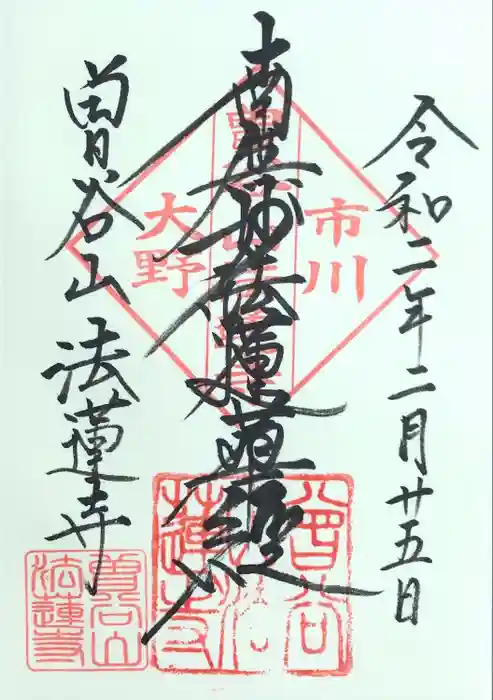 令和二年二月廿五日
南無妙法蓮華経
曽谷山 法蓮寺
市川
大野
曽谷山
法蓮寺